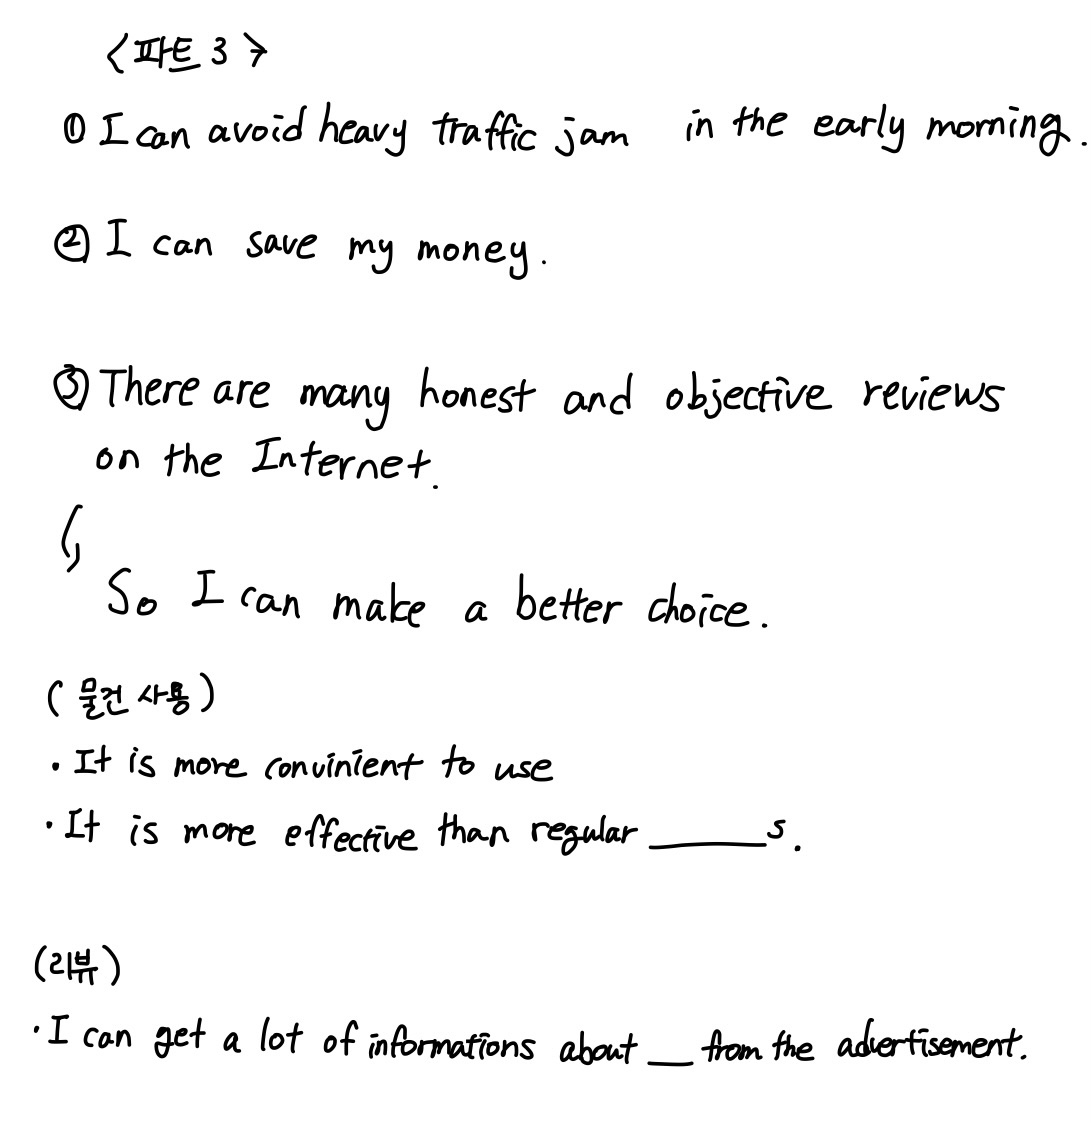 <파트 3>
① I can avoid heavy traffic jam in the early morning.
② I can save my money.
③ There are many honest and objective reviews
on the Internet.
↳
So I can make a better choice.
(물건 사용)
· It is more convinient to use
· It is more effective than regular ______s.
(리뷰)
· I can get a lot of informations about __ from the advertisement.